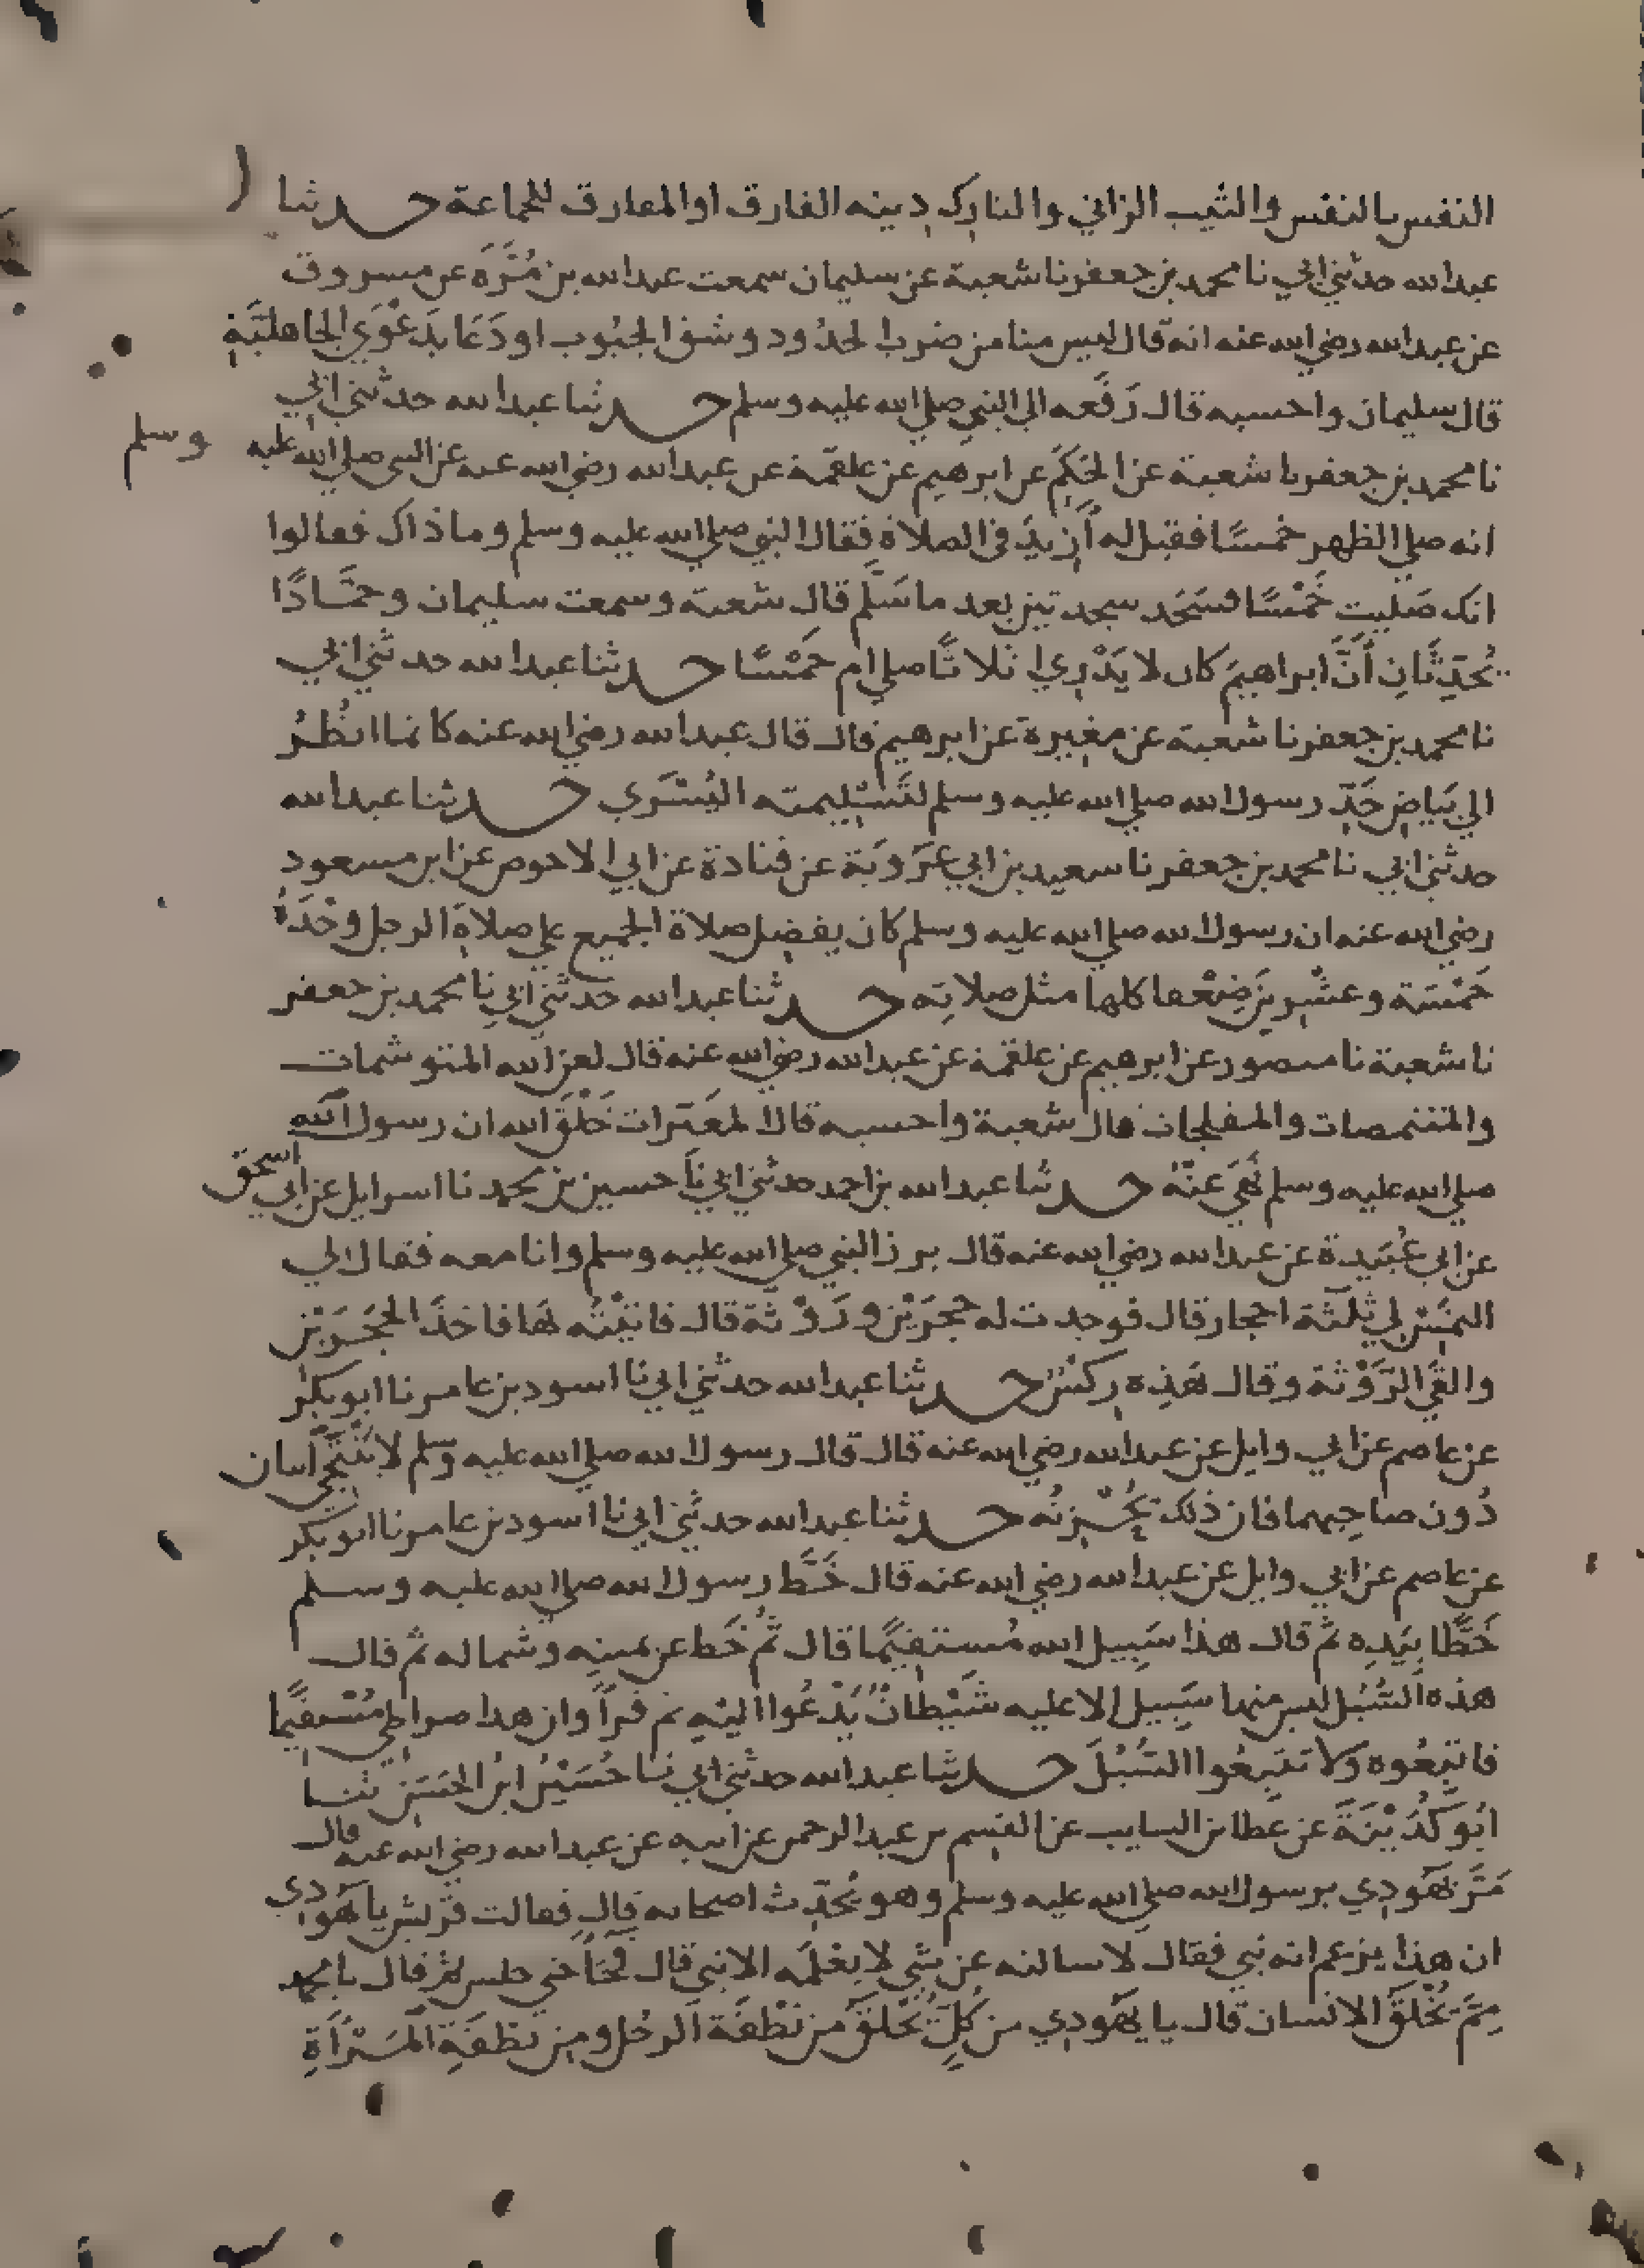 النفس بالنفس والثيب الزاني والتارك دينه الفارق او المفارق للجماعة حدثنا
عبدالله حدثني ابي نا محمد بن جعفر نا شعبة عن سليمان سمعت عبدالله بن مُرَّة عن مسروق
عن عبدالله رضي الله عنه انه قال ليس منا من ضرب الخدُود وشق الجُيُوب او دَعَا بدَعْوَي الجاهليَّةِ
قال سليمان واحسبه قال رَفَعه الي النبي صلي الله عليه وسلم حدثنا عبدالله حدثني ابي
نا محمد بن جعفر نا شعبة عن الحَكَم عن ابرهيم عن علقمة عن عبدالله رضي الله عنه عن النبي صلي الله عليه وسلم
انه صلي الظهر خمسًا فقيل له أزِيدَ في الصلاة فقال النبي صلي الله عليه وسلم وما ذاك فقالوا
انك صَليت خَمْسًا فسَجَد سجدتين بعد ما سَلَّم قال شعبة وسمعت سليمان وحمَّادًا
يُحَدِثَانِ أنَّ ابراهيمَ كان لا يَدْرِي اثلاثًا صلي ام خَمْسًا حدثنا عبدالله حدثني ابي
نا محمد بن جعفر نا شعبة عن مغيرة عن ابرهيم قال قال عبدالله رضي الله عنه كانما انظُرُ
الي بَيَاضِ خَدِّ رسول الله صلي الله عليه وسلم لتَسْلِيمته اليُسْرَي حدثنا عبدالله
حدثني ابي نا محمد بن جعفر نا سعيد بن ابي عَرُوبَة عن قتادة عن ابي الاحوص عن ابن مسعود
رضي الله عنه ان رسول الله صلي الله عليه وسلم كان يفضِل صلاة الجميع علي صلاةِ الرجل وحْدَهُ
خَمْسَة وعشْرِينَ ضِعْفا كلها مثل صلاتِه حدثنا عبدالله حدثني ابي نا محمد بن جعفر
نا شعبة نا منصور عن ابرهيم عن علقمة عن عبدالله رضي الله عنه قال لعن الله المتوشمات
والمتنمصات والمفلجات قال شعبة واحسبه قال المغيّرات خَلْقَ الله ان رسول الله
صلي الله عليه وسلم نَهَي عنْهُ حدثنا عبدالله بن احمد حدثني ابي نا حسين بن محمد نا اسرايل عن ابي اسحق
عن ابي عُبَيدة عن عبدالله رضي الله عنه قال برز النبي صلي الله عليه وسلم وانا معه فقال لي
التمِسْ لي ثلثَة احجار قال فوجدت له حجرَيْن ورَوْثة قال فاتيْتُه بهَا فاخذَ الحَجَرَيْن
والقَي الرَّوْثة وقال هَذِه رِكْسٌ حدثنا عبدالله حدثني ابي نا اسود بن عامر نا ابو بكر
عن عاصم عن ابي وايل عن عبدالله رضي الله عنه قال قال رسول الله صلي الله عليه وسلم لا يَتَنَجي اثنان
دُون صاحِبهما فان ذلك يُحْزِنُه حدثنا عبدالله حدثني ابي نا اسود بن عامر نا ابو بكر
عن عاصم عن ابي وايل عن عبدالله رضي الله عنه قال خَطَّ رسول الله صلي الله عليه وسلم
خَطًّا بيَدِه ثم قال هذا سَبِيل الله مُستقِيمًا قال ثُم خَط عن يمينِه وشماله ثم قال
هذه السُّبُل ليس منها سَبِيل الا عليه شَيْطانٌ يَدْعُوا اليْهِ ثم قراَ وان هذا صراطي مُسْتَقيمًا
فاتبِعُوه وَلا تتبِعُوا السُبُلَ حدثنا عبدالله حدثني ابي نا حُسَيْنُ ابنُ الحَسَنِ ثنا
ابُو كُدَيْنَةَ عن عَطا بن السايب عن القسم بن عبدالرحمن عن ابيه عن عبدالله رضي الله عنه قال
مَرَّ يَهُودِي برسول الله صلي الله عليه وسلم وهو يُحَدِّث اصحابه قال فقالت قريش يا يَهُوديُ
ان هذا يزعم انه نبي فقال لاسالنه عن شي لا يعْلَمه الا نبي قال فجَآ حتي جلس ثم قال يا محمد
مِمَّ يُخْلَقُ الانسان قال يا يَهُودِي من كُلٍّ يُخْلَقُ من نُطْفَة الرجُل ومِن نطْفَةِ المَرْأةِ